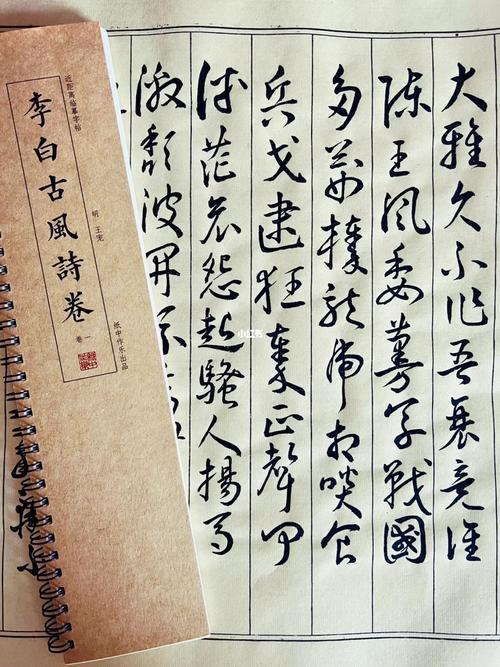 大雅久不作吾衰竟誰
陳王風委蔓草戰國
多荊榛龍虎相啖食
兵戈逮狂秦正聲何
微茫哀怨起騷人揚馬
激頹波開流
近距离临摹字帖
李白古風詩卷
卷一
明 王宠
纸中作乐出品
小红书